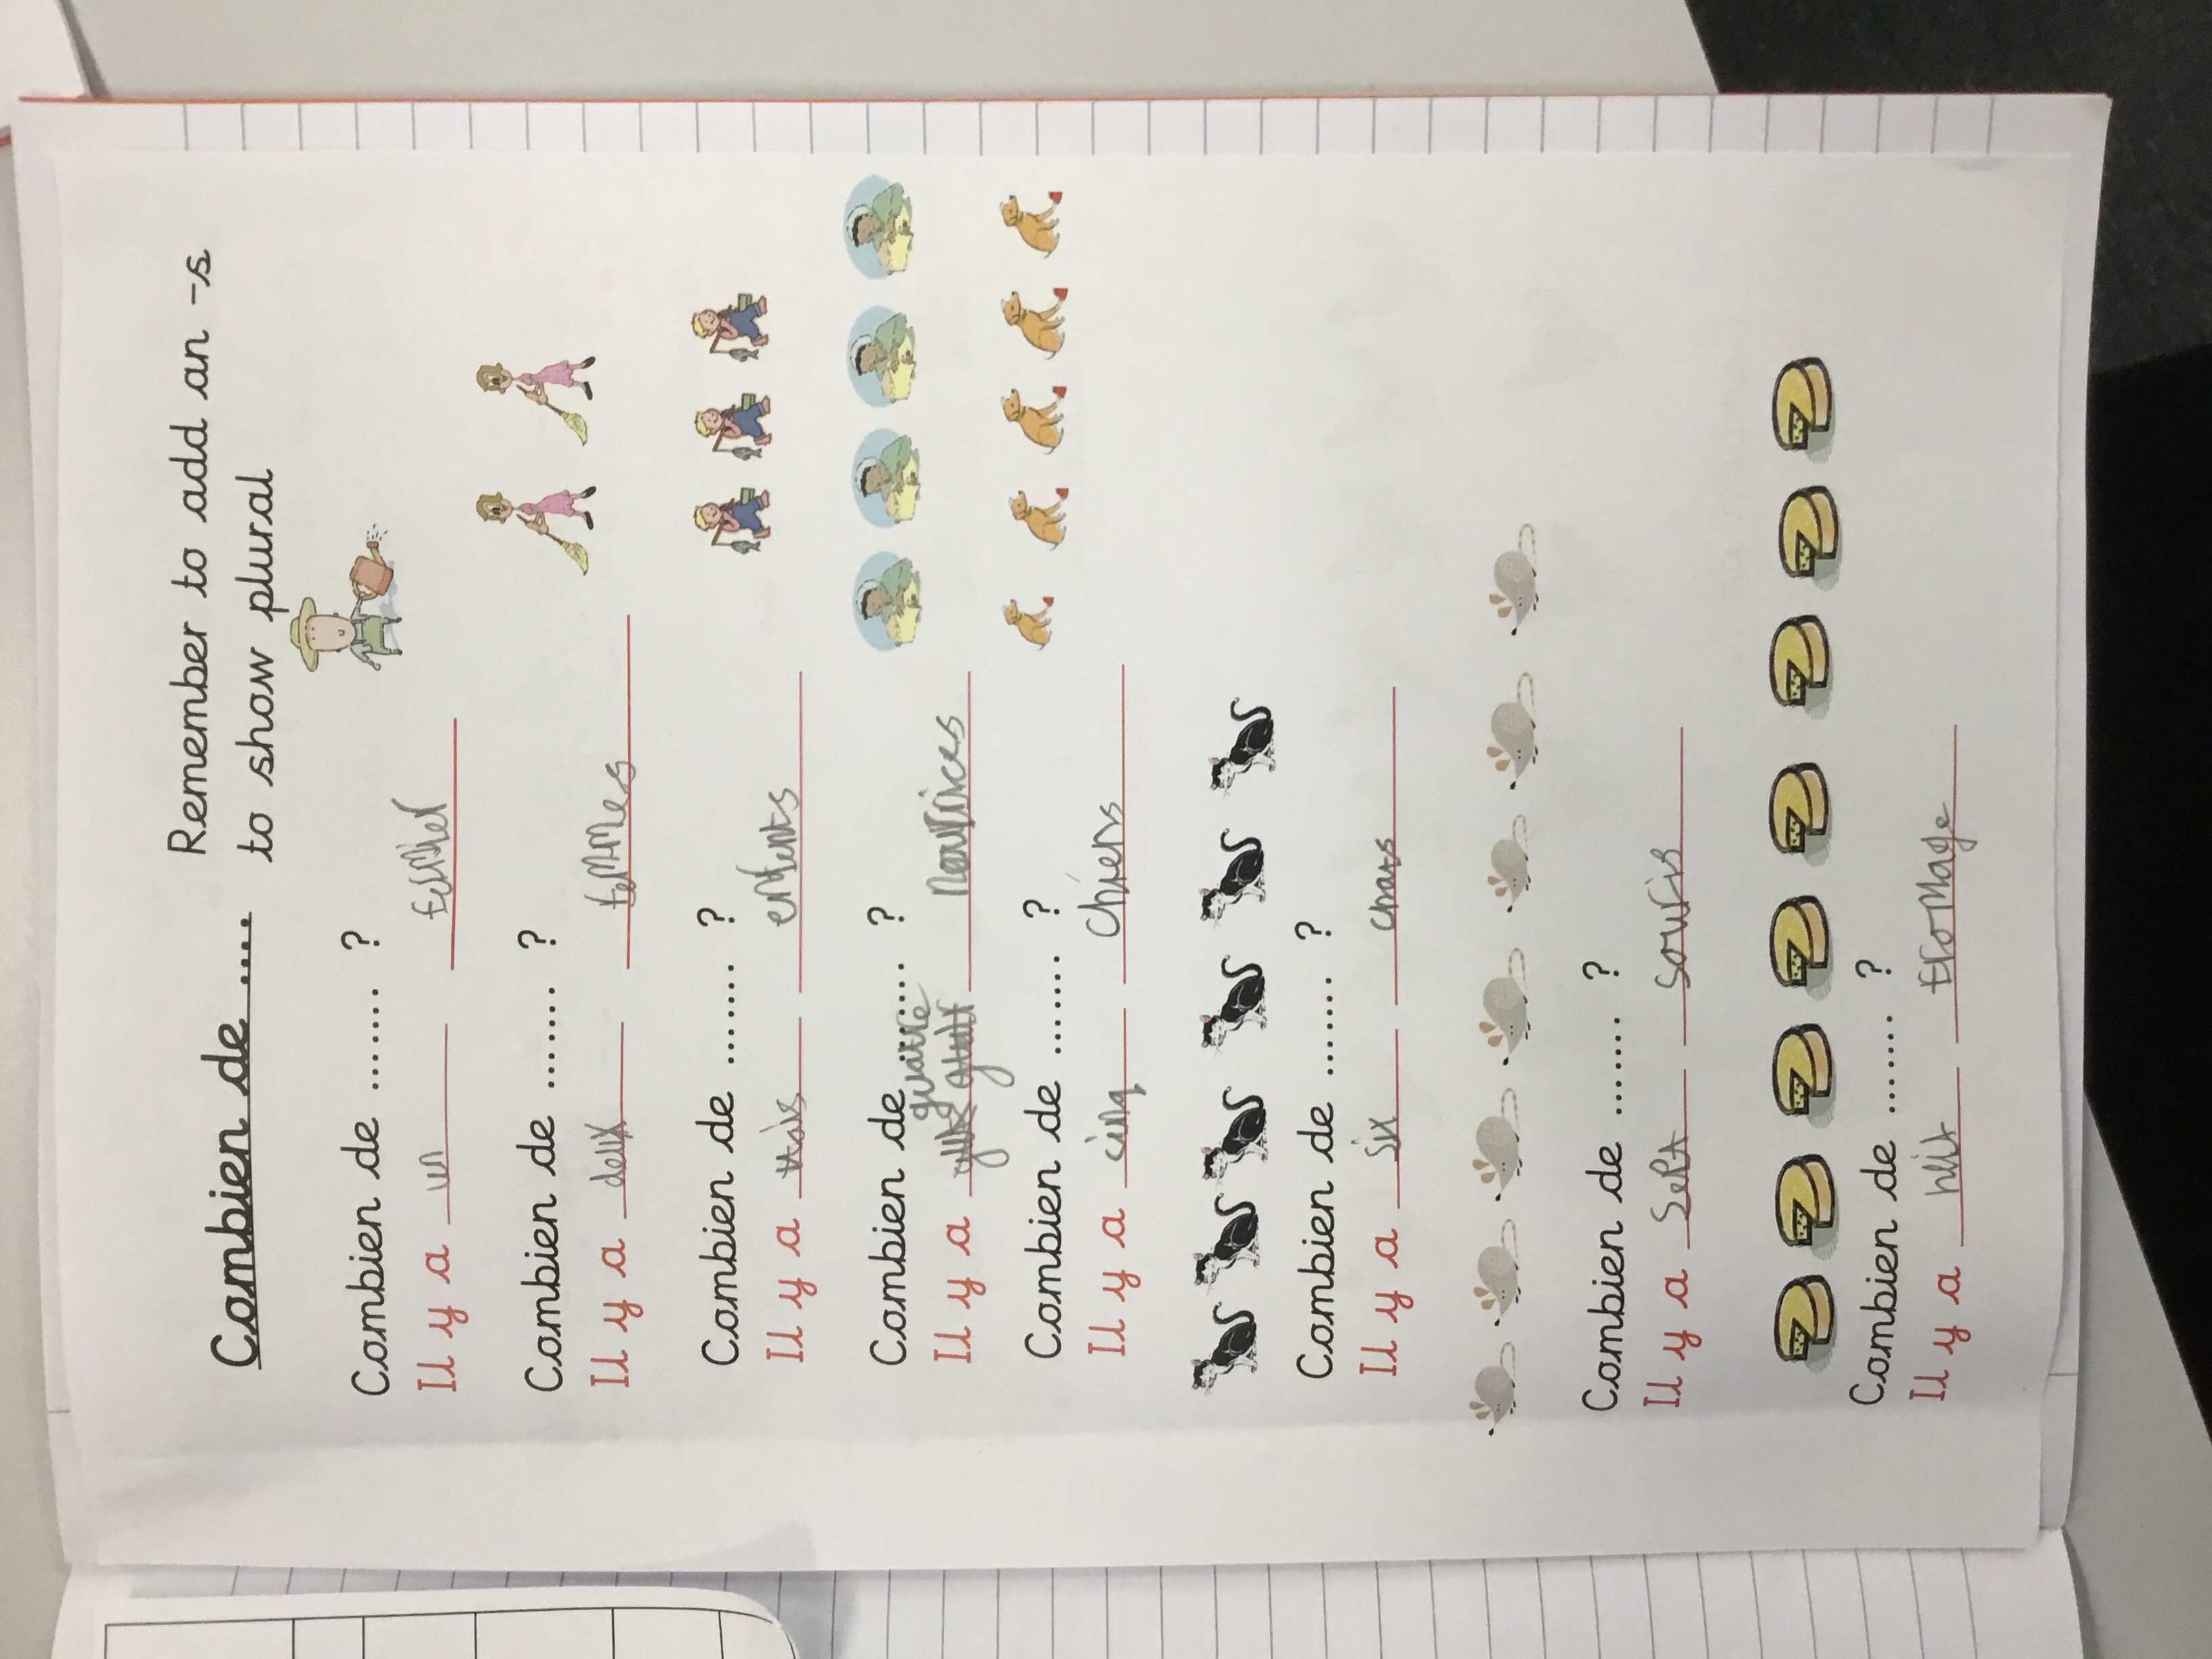 Combien de ....
Remember to add an -s
to show plural
Combien de ....... ?
Il y a un fermier
Combien de ....... ?
Il y a deux femmes
Combien de ....... ?
Il y a trois enfants
Combien de ....... ?
quatre
Il y a nourrices
Combien de ....... ?
Il y a cinq chiens
Combien de ........ ?
Il y a six chats
Combien de ....... ?
Il y a sept souris
Combien de ....... ?
Il y a huit fromage